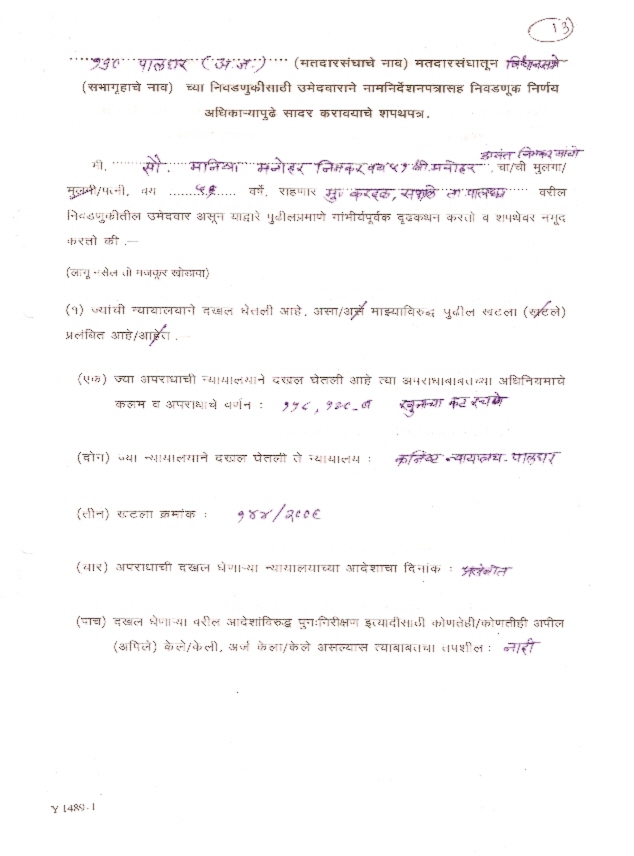 13
१३० पालघर (अ.ज.) (मतदारसंघाचे नाव) मतदारसंघातून विधानसभा
(सभागृहाचे नाव) च्या निवडणुकीसाठी उमेदवाराने नामनिर्देशनपत्रासह निवडणूक निर्णय
अधिकाऱ्यापुढे सादर करावयाचे शपथपत्र.
वसंत निमकर यांची
मी, सौ. मनिषा मनोहर निमकर वय ५१ श्री. मनोहर चा/ची मुलगा/
मुलगी/पत्नी, वय ५१ वर्षे, राहणार मु. सफाळे ता. पालघर वरील
निवडणुकीतील उमेदवार असून याद्वारे पुढीलप्रमाणे गांभीर्यपूर्वक दृढकथन करतो व शपथेवर नमूद
करतो की .—
(लागू नसेल तो मजकूर खोडावा)
(१) ज्यांची न्यायालयाने दखल घेतली आहे, असा/असे माझ्याविरुद्ध पुढील खटला (खटले)
प्रलंबित आहे/आहेत .—
(एक) ज्या अपराधाची न्यायालयाने दखल घेतली आहे त्या अपराधाबाबतच्या अधिनियमाचे
कलम व अपराधाचे वर्णन : १२०-ब खुनाचा कट रचणे
(दोन) ज्या न्यायालयाने दखल घेतली ते न्यायालय : कनिष्ट न्यायालय - पालघर
(तीन) खटला क्रमांक : १४४/२००६
(चार) अपराधाची दखल घेणाऱ्या न्यायालयाच्या आदेशाचा दिनांक : प्रलंबीत
(पाच) दखल घेणाऱ्या वरील आदेशांविरुद्ध पुनःनिरीक्षण इत्यादीसाठी कोणतेही/कोणतीही अपील
(अपिले) केले/केली, अर्ज केला/केले असल्यास त्याबाबतचा तपशील : नाही
Y 1489-1